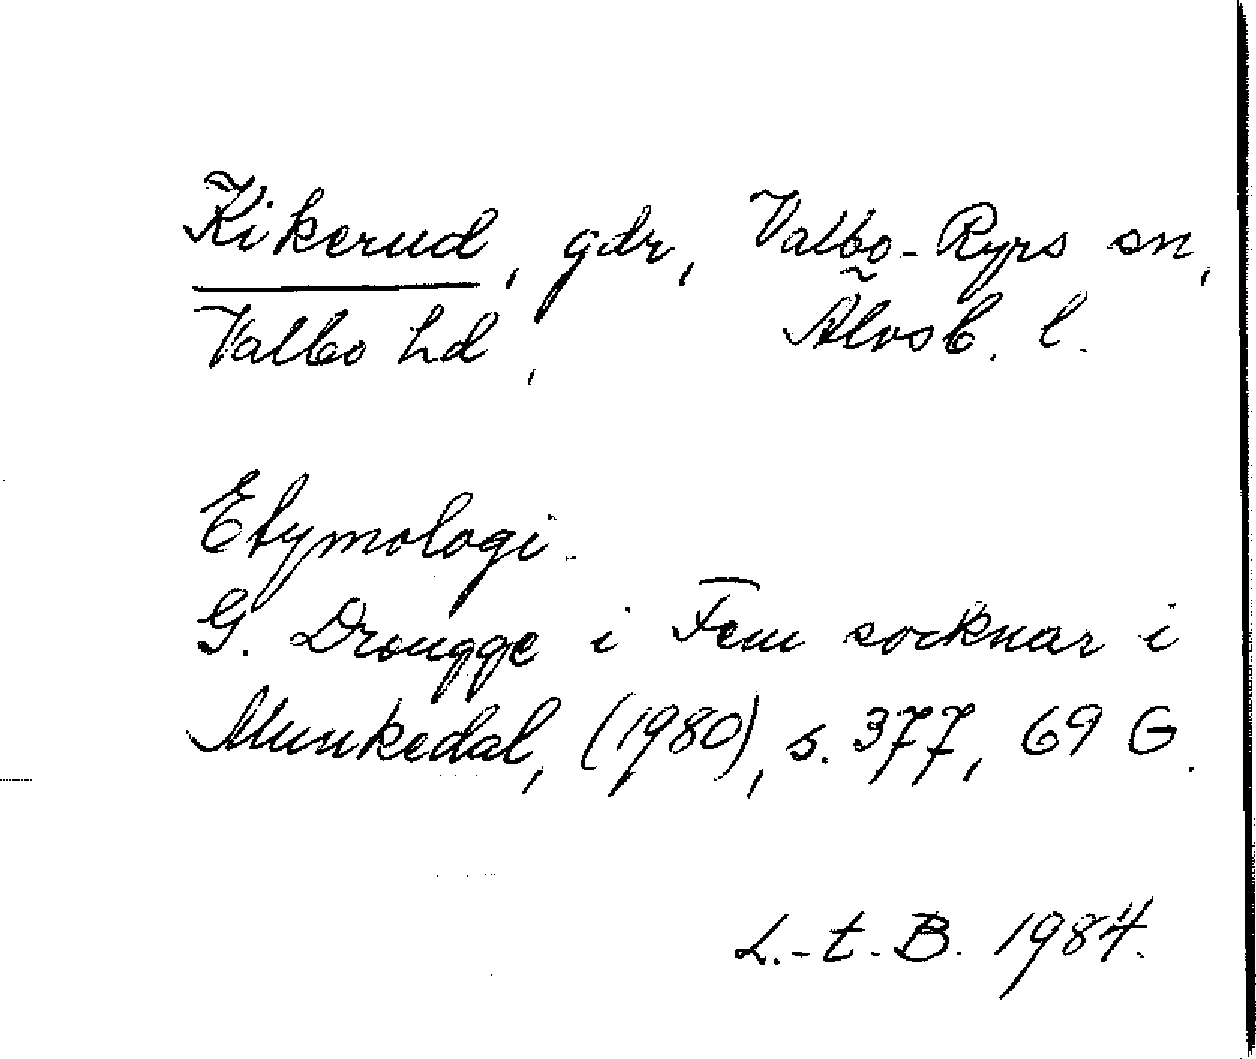 Kikerud, gdr, Valbo-Ryrs sn,
Valbo hd, Älvsb. l.
Etymologi.
G. Drougge i Fem socknar i
Munkedal, (1980), s. 377, 69 G.
L.-t. B. 1984.